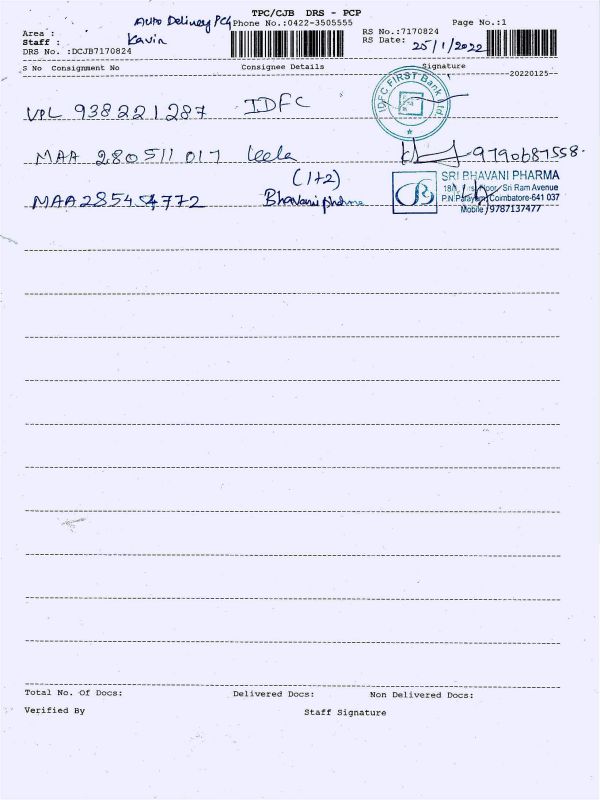 TPC/CJB DRS - PCP
Auto Delivery PCG Phone No.:0422-3505555 Page No.:1
Area : RS No.:7170824
Staff : Kavin RS Date: 25/1/2022
DRS No. :DCJB7170824
S No Consignment No Consignee Details Signature
20220125
VPL 938221287 IDFC
IDFC FIRST Bank Ltd.
MAA 280511017 leela 9790687558.
(1+2)
MAA285454772 Bhavani pharma
SRI BHAVANI PHARMA
Floor, Sri Ram Avenue
P.N.Palayam, Coimbatore-641 037
Mobile 9787137477
Total No. Of Docs: Delivered Docs: Non Delivered Docs:
Verified By Staff Signature